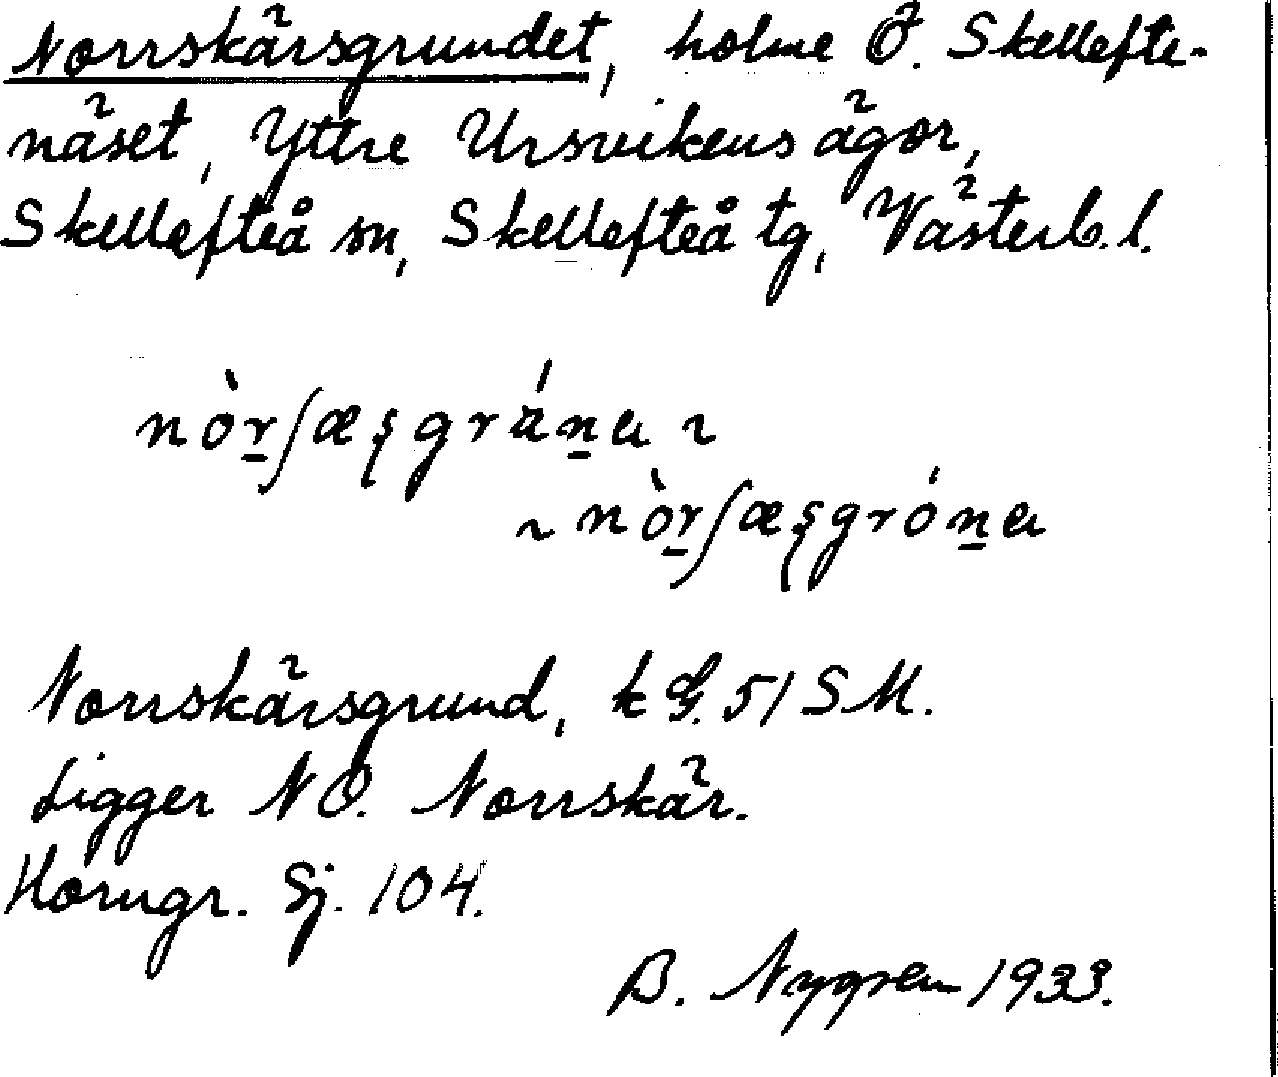 Norrskärsgrundet, holme Ö. Skellefte-
näset, Yttre Ursvikens ägor,
Skellefteå sn, Skellefteå tg, Västerb. l.
nòr̲ʃæʂgrán̲a ~
~ nòr̲ʃæʂgrón̲a
Norrskärsgrund, k G. 51 SM.
Ligger NO. Norrskär.
Horngr. Sj. 104.
B. Nygren 1933.